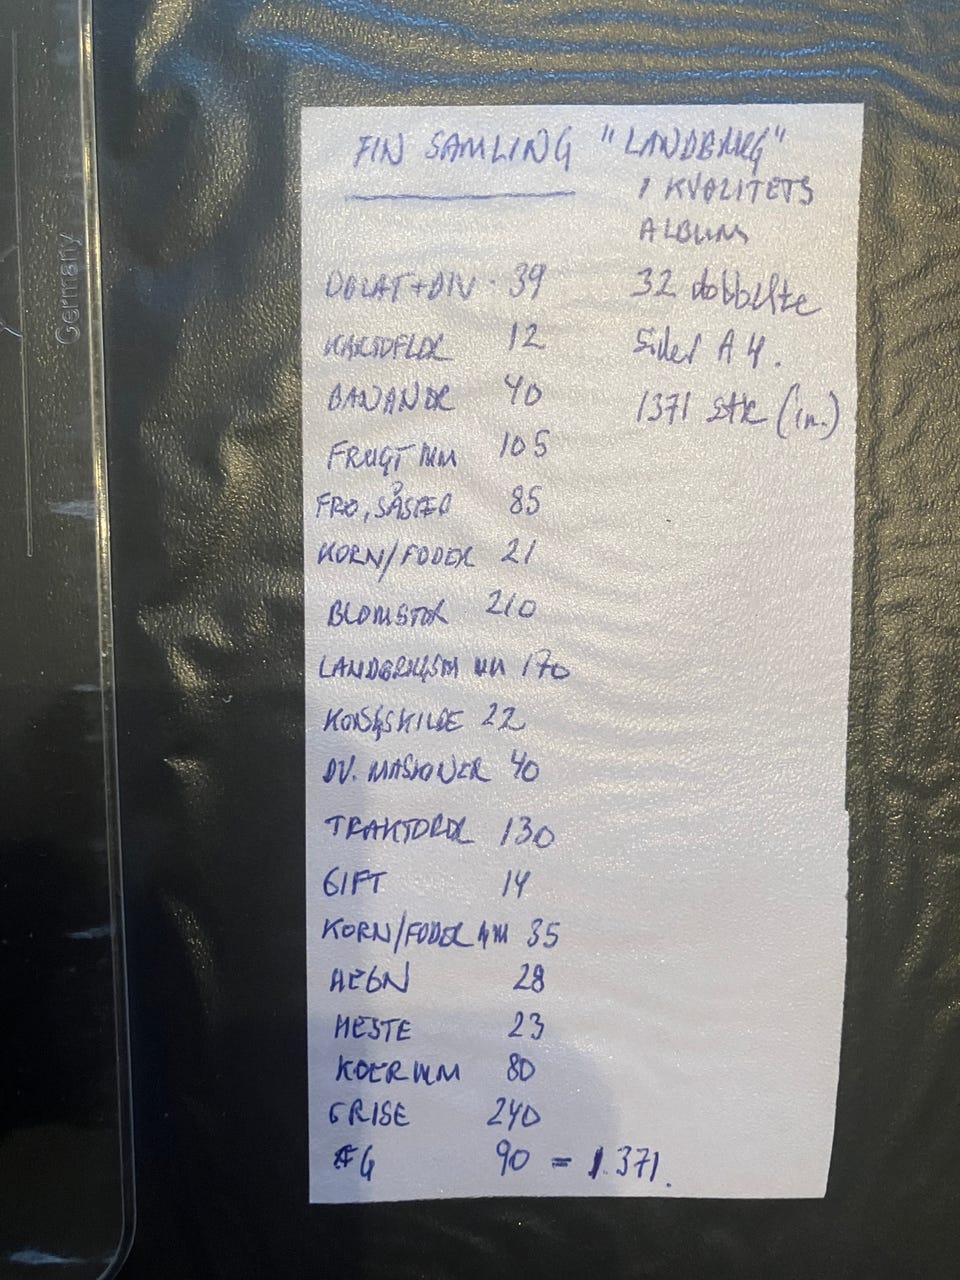 FIN SAMLING "LANDBRUG"
I KVALITETS
ALBUM
32 dobbelte
Sider A4.
1371 stk (in.)
+DIV. 39
KARTOFLER 12
BANANER 40
FRUGT MM 105
FRØ, SÅSÆD 85
KORN/FODER 21
BLOMSTER 210
LANDBRUGSM MM 170
KONGSKILDE 22
DV. MASKINER 40
TRAKTORER 130
GIFT 14
KORN/FODER MM 35
HEGN 28
HESTE 23
KØER MM 80
GRISE 240
ÆG 90 = 1.371.
Germany